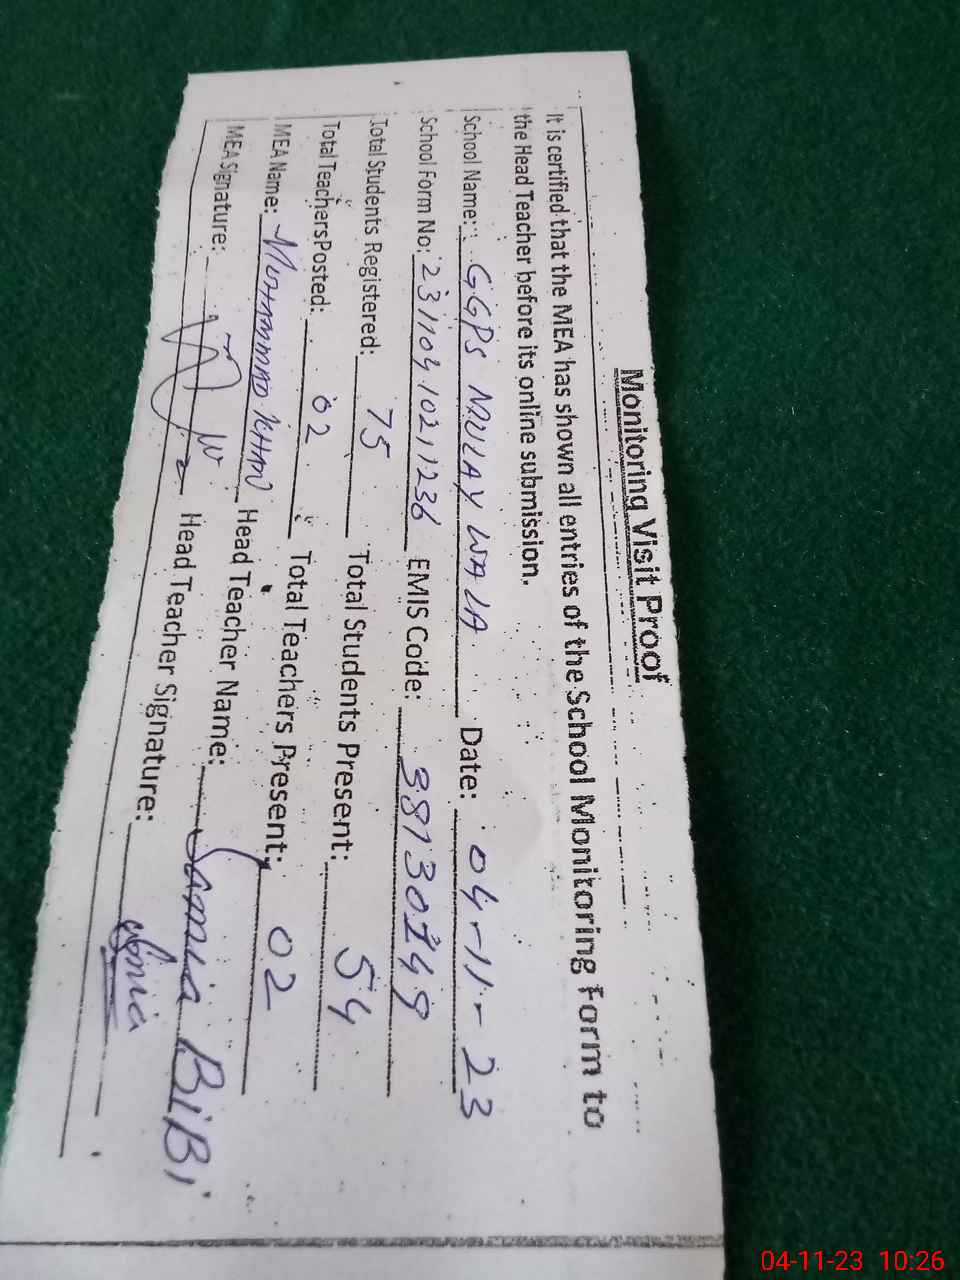 Monitoring Visit Proof
It is certified that the MEA has shown all entries of the School Monitoring Form to
the Head Teacher before its online submission.
School Name: GGPS MULAY WALA Date: 04-11-23
School Form No: 23110410211236 EMIS Code: 38130149
Total Students Registered: 75 Total Students Present: 54
Total Teachers Posted: 02 Total Teachers Present: 02
MEA Name: MUHAMMAD KHAN Head Teacher Name: Samia BiBi
MEA Signature: Head Teacher Signature: Samia
04-11-23 10:26